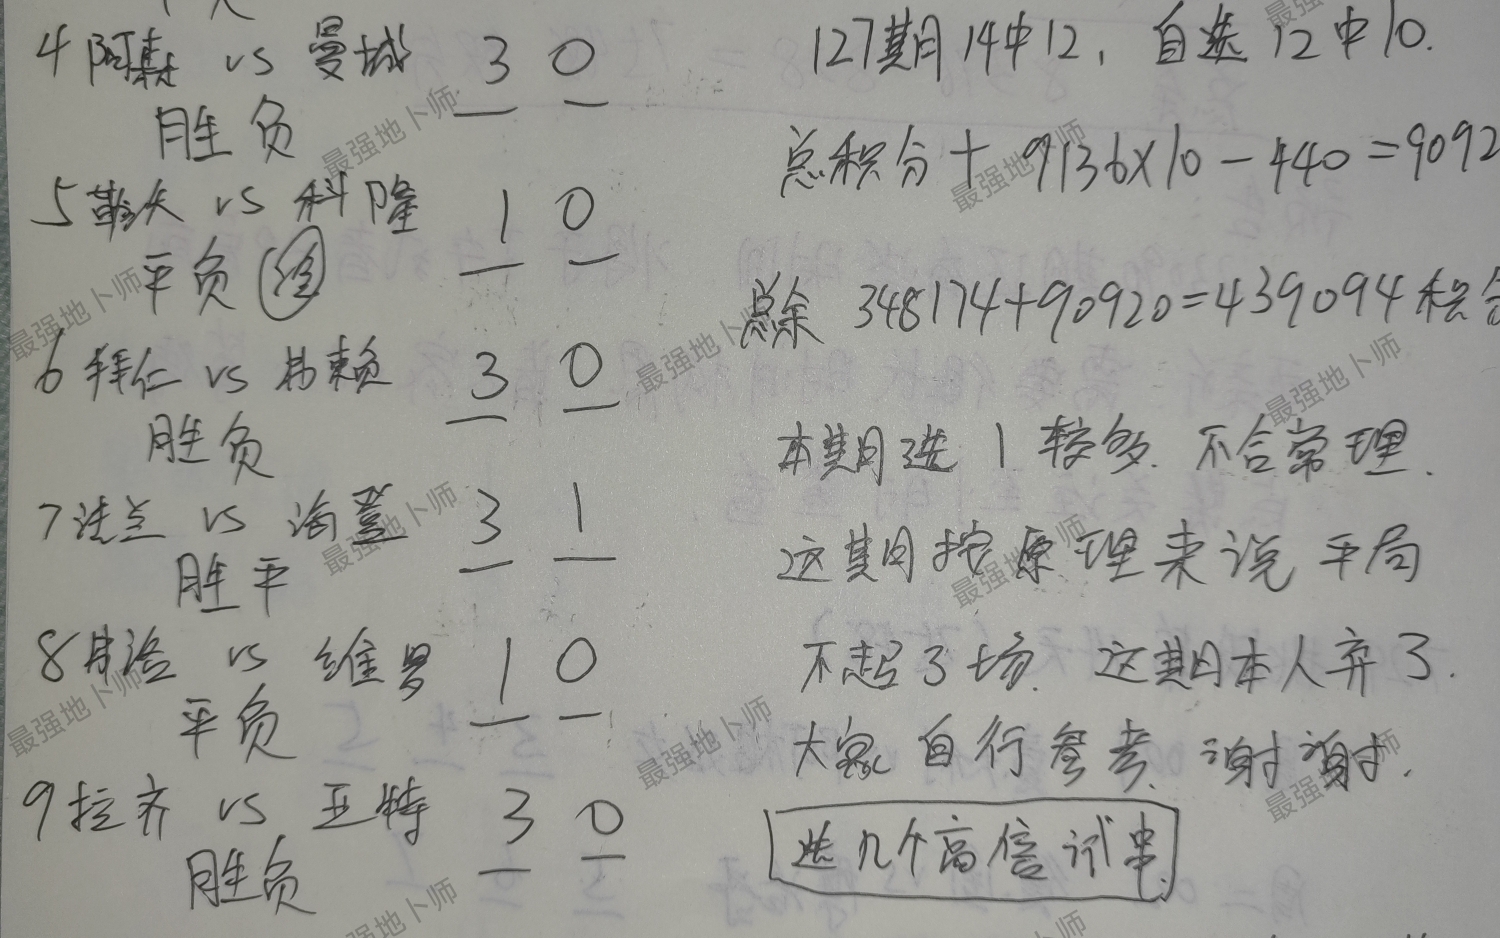 4 阿森 vs 曼城 3 0
胜 负
5 勒沃 vs 科隆 1 0
平 负
6 拜仁 vs 弗赖 3 0
胜负
7 法兰 vs 海登 3 1
胜平
8 博洛 vs 维罗 1 0
平负
9 拉齐 vs 亚特 3 0
胜负
127期14中12, 自选12中10.
总积分 + 9136×10-440=9092
总余 348174+90920=439094 积分
本期选 1 较多. 不合常理.
这期按原理来说 平局
不超3场. 这期本人弃了.
大家自行参考. 谢谢.
选几个高倍试串.
最强地卜师